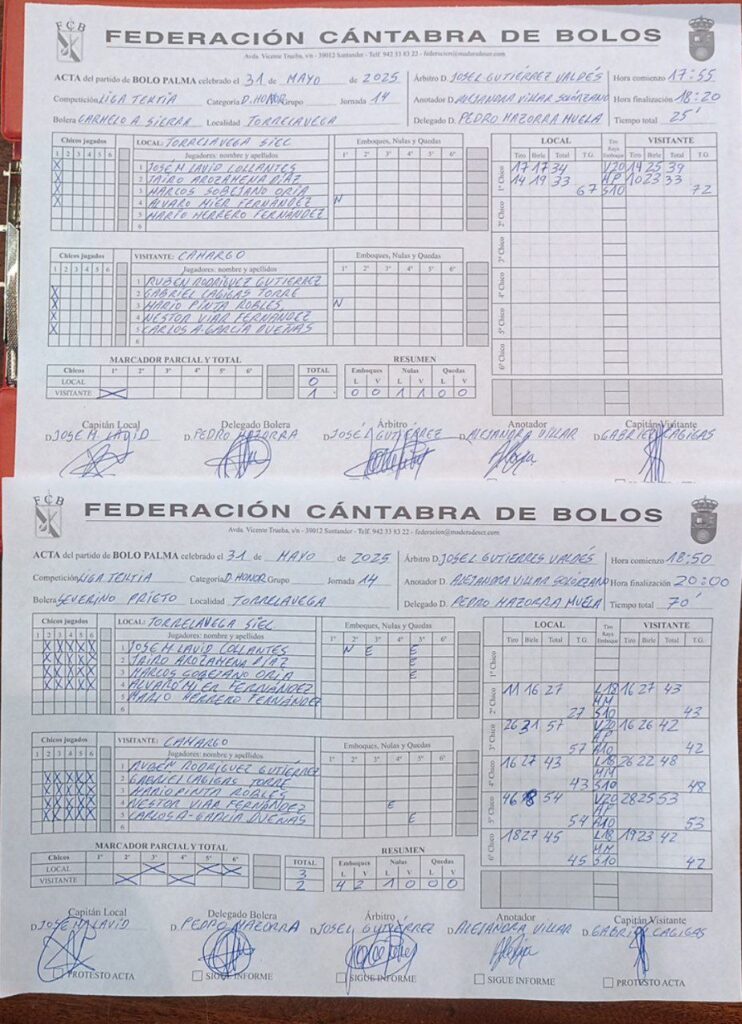 FCB
FEDERACIÓN CÁNTABRA DE BOLOS
Avda. Vicente Trueba, s/n - 39012 Santander - Telf. 942 33 83 22 - federacion@maderadeser.com
ACTA del partido de BOLO PALMA celebrado el 31 de MAYO de 2025 Árbitro D. JOSEL GUTIÉRREZ VALDÉS Hora comienzo 17:55
Competición LIGA TEXTIA Categoría D. HONOR Grupo Jornada 14 Anotador D. ALEJANDRA VILLAR SOLÓRZANO Hora finalización 18:20
Bolera CARMELO A. SIERRA Localidad TORRELAVEGA Delegado D. PEDRO MAZORRA MUELA Tiempo total 25'
Chicos jugados LOCAL: TORRELAVEGA SIEC Emboques, Nulas y Quedas LOCAL VISITANTE
1 2 3 4 5 6 Jugadores: nombre y apellidos 1º 2º 3º 4º 5º 6º Tiro Birle Total T.G. Tiro Raya Emboque Tiro Birle Total T.G.
X 1 JOSE M. LAVID COLLANTES 1º Chico 17 17 34 V20 14 25 39
X 2 JAIRO AROZAMENA DIAZ 14 19 33 AP 10 23 33
X 3 MARCOS SOBEJANO ORIA 67 S10 72
X 4 ALVARO MIER FERNANDEZ N
5 MARIO HERRERO FERNANDEZ 2º Chico
6
3º Chico
Chicos jugados VISITANTE: CAMARGO Emboques, Nulas y Quedas
1 2 3 4 5 6 Jugadores: nombre y apellidos 1º 2º 3º 4º 5º 6º
1 RUBÉN RODRÍGUEZ GUTIERREZ 4º Chico
X 2 GABRIEL CAGIGAS TORRE
X 3 MARIO PINTA ROBLES N
X 4 NESTOR VIAR FERNANDEZ 5º Chico
X 5 CARLOS A. GARCÍA DUEÑAS
6
MARCADOR PARCIAL Y TOTAL RESUMEN 6º Chico
Chicos 1º 2º 3º 4º 5º 6º TOTAL Emboques Nulas Quedas
LOCAL 0 L V L V L V
VISITANTE X 1 0 0 1 1 0 0
Capitán Local Delegado Bolera Árbitro Anotador Capitán Visitante
D. JOSE M. LAVID D. PEDRO MAZORRA D. JOSÉ L GUTIÉRREZ D. ALEJANDRA VILLAR D. GABRIEL CAGIGAS
FCB
FEDERACIÓN CÁNTABRA DE BOLOS
Avda. Vicente Trueba, s/n - 39012 Santander - Telf. 942 33 83 22 - federacion@maderadeser.com
ACTA del partido de BOLO PALMA celebrado el 31 de MAYO de 2025 Árbitro D. JOSEL GUTIERRES VALDÉS Hora comienzo 18:50
Competición LIGA TEXTIA Categoría D. HONOR Grupo Jornada 14 Anotador D. ALEJANDRA VILLAR SOLÓRZANO Hora finalización 20:00
Bolera SEVERINO PRIETO Localidad TORRELAVEGA Delegado D. PEDRO MAZORRA MUELA Tiempo total 70'
Chicos jugados LOCAL: TORRELAVEGA SIEC Emboques, Nulas y Quedas LOCAL VISITANTE
1 2 3 4 5 6 Jugadores: nombre y apellidos 1º 2º 3º 4º 5º 6º Tiro Birle Total T.G. Tiro Raya Emboque Tiro Birle Total T.G.
X X X X X 1 JOSE M. LAVID COLLANTES N E E 1º Chico
X X X X X 2 JAIRO AROZAMENA DIAZ E
X X X X X 3 MARCOS SOBEJANO ORIA E
X X X X X 4 ALVARO MIER FERNÁNDEZ 2º Chico 11 16 27 L18 16 27 43
5 MARIO HERRERO FERNANDEZ MM
6 27 S10 43
3º Chico 26 31 57 V20 16 26 42
AP
Chicos jugados VISITANTE: CAMARGO Emboques, Nulas y Quedas 57 A10 42
1 2 3 4 5 6 Jugadores: nombre y apellidos 1º 2º 3º 4º 5º 6º
1 RUBEN RODRIGUEZ GUTIÉRREZ 4º Chico 16 27 43 L18 26 22 48
X X X X X 2 GABRIEL CAGIGAS TORRE MM
X X X X X 3 MARIO PINTA ROBLES 43 S10 48
X X X X X 4 NESTOR VIAR FERNANDEZ E 5º Chico 46 8 54 V20 28 25 53
X X X X X 5 CARLOS A. GARCIA DUEÑAS E AP
6 54 A10 53
MARCADOR PARCIAL Y TOTAL RESUMEN 6º Chico 18 27 45 L18 19 23 42
Chicos 1º 2º 3º 4º 5º 6º TOTAL Emboques Nulas Quedas MM
LOCAL X X X 3 L V L V L V 45 S10 42
VISITANTE X X 2 4 2 1 0 0 0
Capitán Local Delegado Bolera Árbitro Anotador Capitán Visitante
D. JOSE M. LAVID D. PEDRO MAZORRA D. JOSEL GUTIÉRREZ D. ALEJANDRA VILLAR D. GABRIEL CAGIGAS
PROTESTO ACTA SIGUE INFORME SIGUE INFORME SIGUE INFORME PROTESTO ACTA